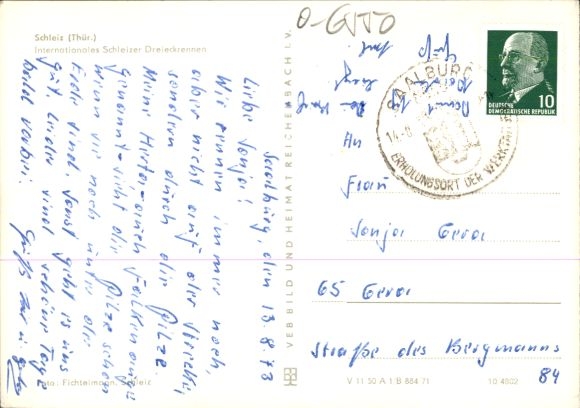 Schleiz (Thür.)
Internationales Schleizer Dreieckrennen
Saalburg, den 13.8.73
Liebe Sonja!
Wir rennen immer noch,
aber nicht auf der Strecke,
sondern durch die Pilze.
Meine Mutter – auch Falkenauge
genannt – sieht die Pilze schon
wenn sie noch unter der
Erde sind. Sonst geht es uns
gut. Leider sind schöne Tage
bald vorbei.
Foto: Fichtelmann, Schleiz
VEB BILD UND HEIMAT REICHENBACH i. V.
0-GJJ0
SAALBURG
ERHOLUNGSORT DER WERKTÄTIGEN
DEUTSCHE
DEMOKRATISCHE REPUBLIK
10
An
Frau
Sonja Gera
65 Gera
Straße des Bergmanns
84
V 11 50 A 1 B 884 71
10 4802